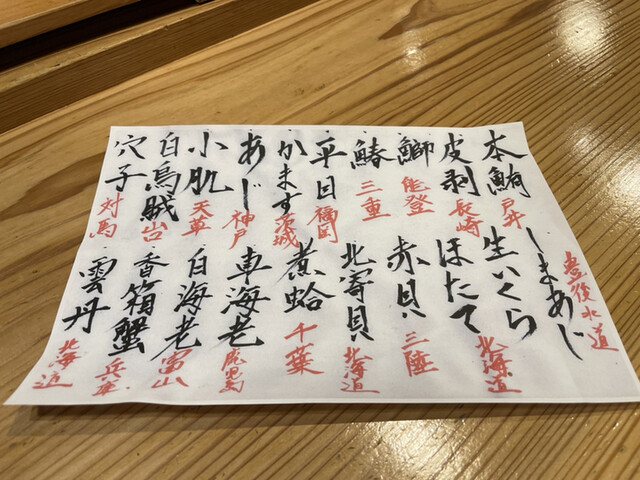 本鮪 戸井
皮剥 長崎
鰤 能登
鰆 三重
平目 福岡
かます 茨城
あじ 神戸
小肌 天草
白烏賊
穴子 対馬
しまあじ 豊後水道
生いくら
ほたて 北海道
赤貝 三陸
北寄貝 北海道
煮蛤 千葉
車海老 鹿児島
白海老 富山
香箱蟹 兵庫
雲丹 北海道